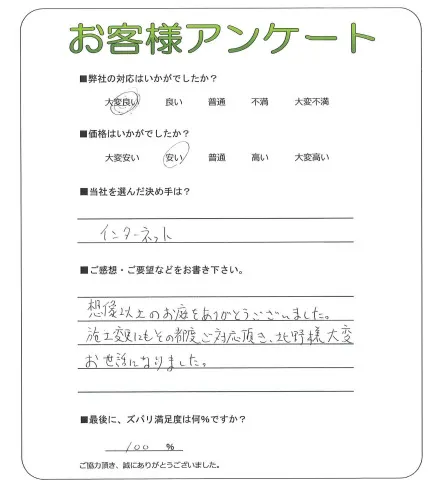 お客様アンケート
■弊社の対応はいかがでしたか？
大変良い 良い 普通 不満 大変不満
■価格はいかがでしたか？
大変安い 安い 普通 高い 大変高い
■当社を選んだ決め手は？
インターネット
■ご感想・ご要望などをお書き下さい。
想像以上のお庭をありがとうございました。
施工変更にもその都度ご対応頂き、北野様大変
お世話になりました。
■最後に、ズバリ満足度は何％ですか？
100 ％
ご協力頂き、誠にありがとうございました。